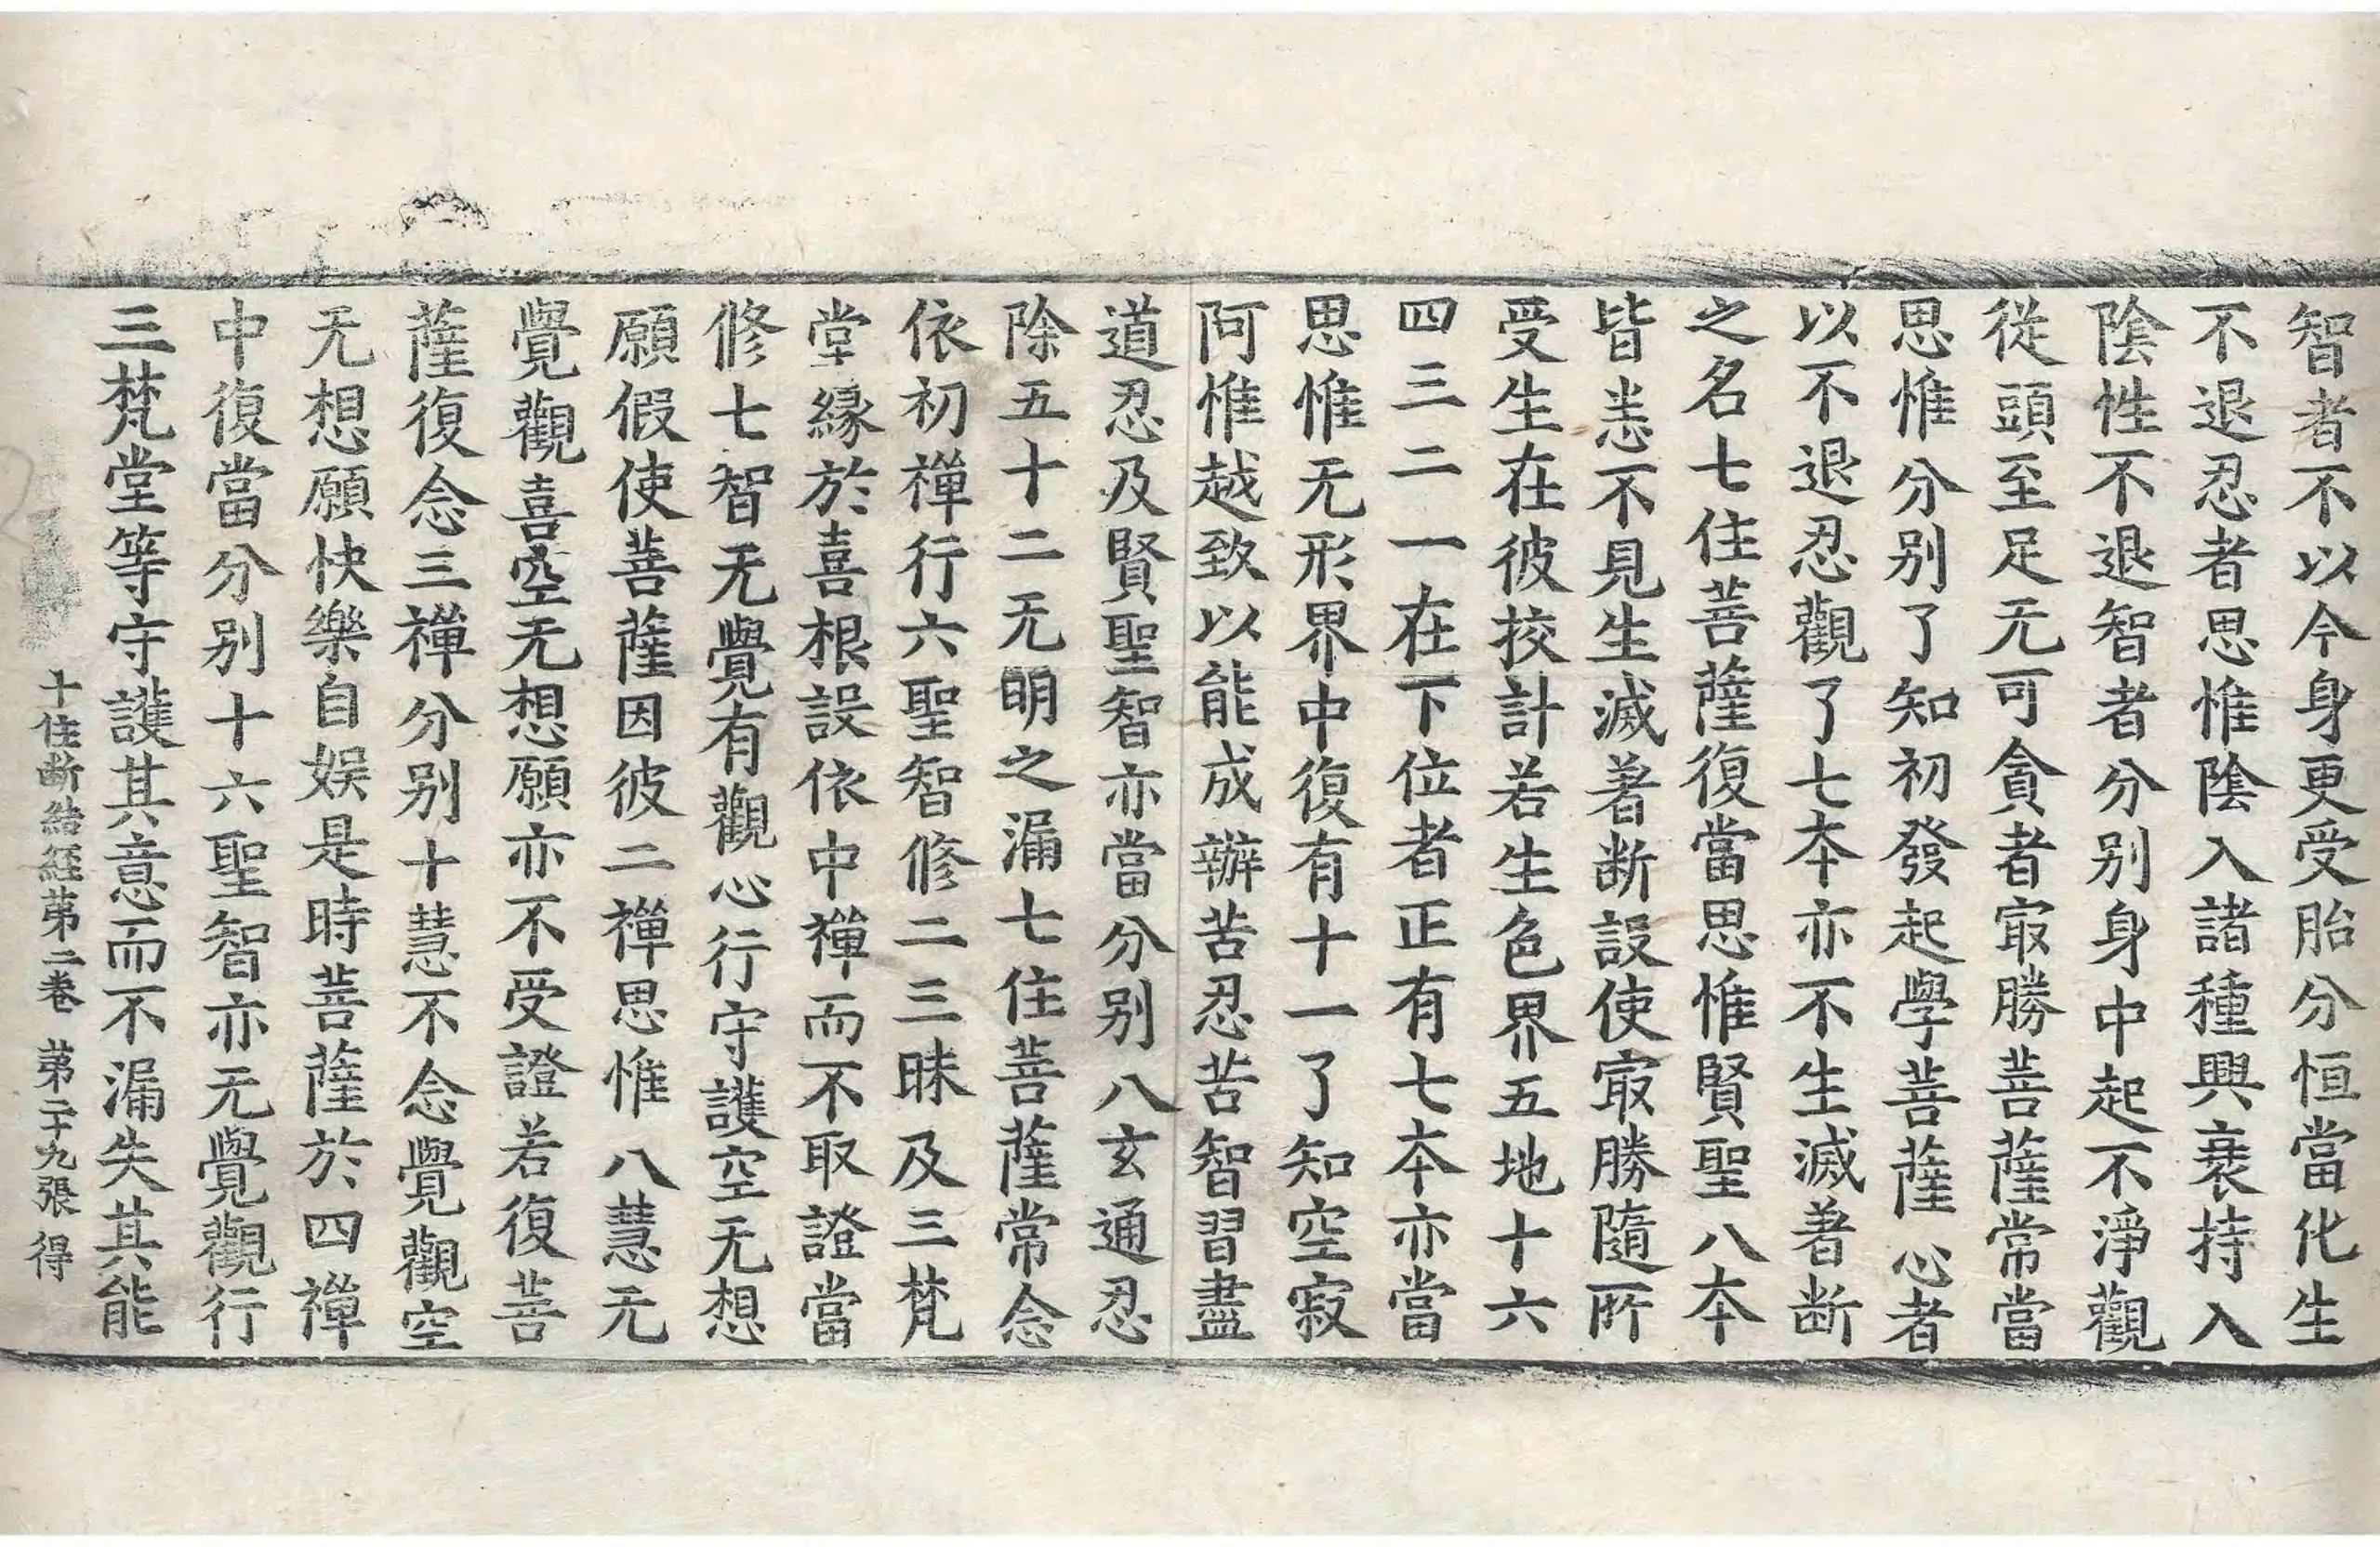 智者不以今身更受胎分恒當化生
不退忍者思惟陰入諸種興衰持入
陰性不退智者分別身中起不淨觀
從頭至足无可貪者㝡勝菩薩常當
思惟分別了知初發起學菩薩心者
以不退忍觀了七本亦不生滅著断
之名七住菩薩復當思惟賢聖八本
皆悉不見生滅著断設使㝡勝隨所
受生在彼挍計若生色界五地十六
四三二一在下位者正有七本亦當
思惟无形界中復有十一了知空寂
阿惟越致以能成辦苦忍苦智習盡
道忍及賢聖智亦當分別八玄通忍
除五十二无明之漏七住菩薩常念
依初禪行六聖智修二三昧及三梵
堂緣於喜根設依中禪而不取證當
修七智无覺有觀心行守護空无想
願假使菩薩因彼二禪思惟八慧无
覺觀喜空无想願亦不受證若復菩
薩復念三禪分別十慧不念覺觀空
无想願快樂自娛是時菩薩於四禪
中復當分別十六聖智亦无覺觀行
三梵堂等守護其意而不漏失其能
十住断結經第二卷 第二十九張 得